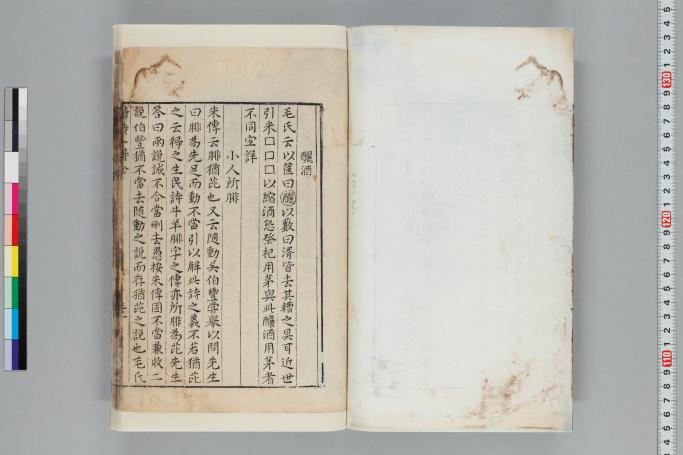 釃酒
毛氏云以筐曰釃以藪曰湑皆去其糟之具耳近世
引米口口口以縮酒恐祭祀用茅與此釃酒用茅者
不同宜詳
小人所腓
朱傳云腓猶芘也又云隨動吳伯豐嘗舉以問先生
曰腓為先足而動不當引以解此詩之義不若猶芘
之云得之生民詩牛羊腓字之傳亦所腓為芘先生
答曰兩說誠不合當刪去愚按朱傳固不當兼收二
說伯豐猶不當去隨動之說而存猶芘之說也毛氏
130
120
110